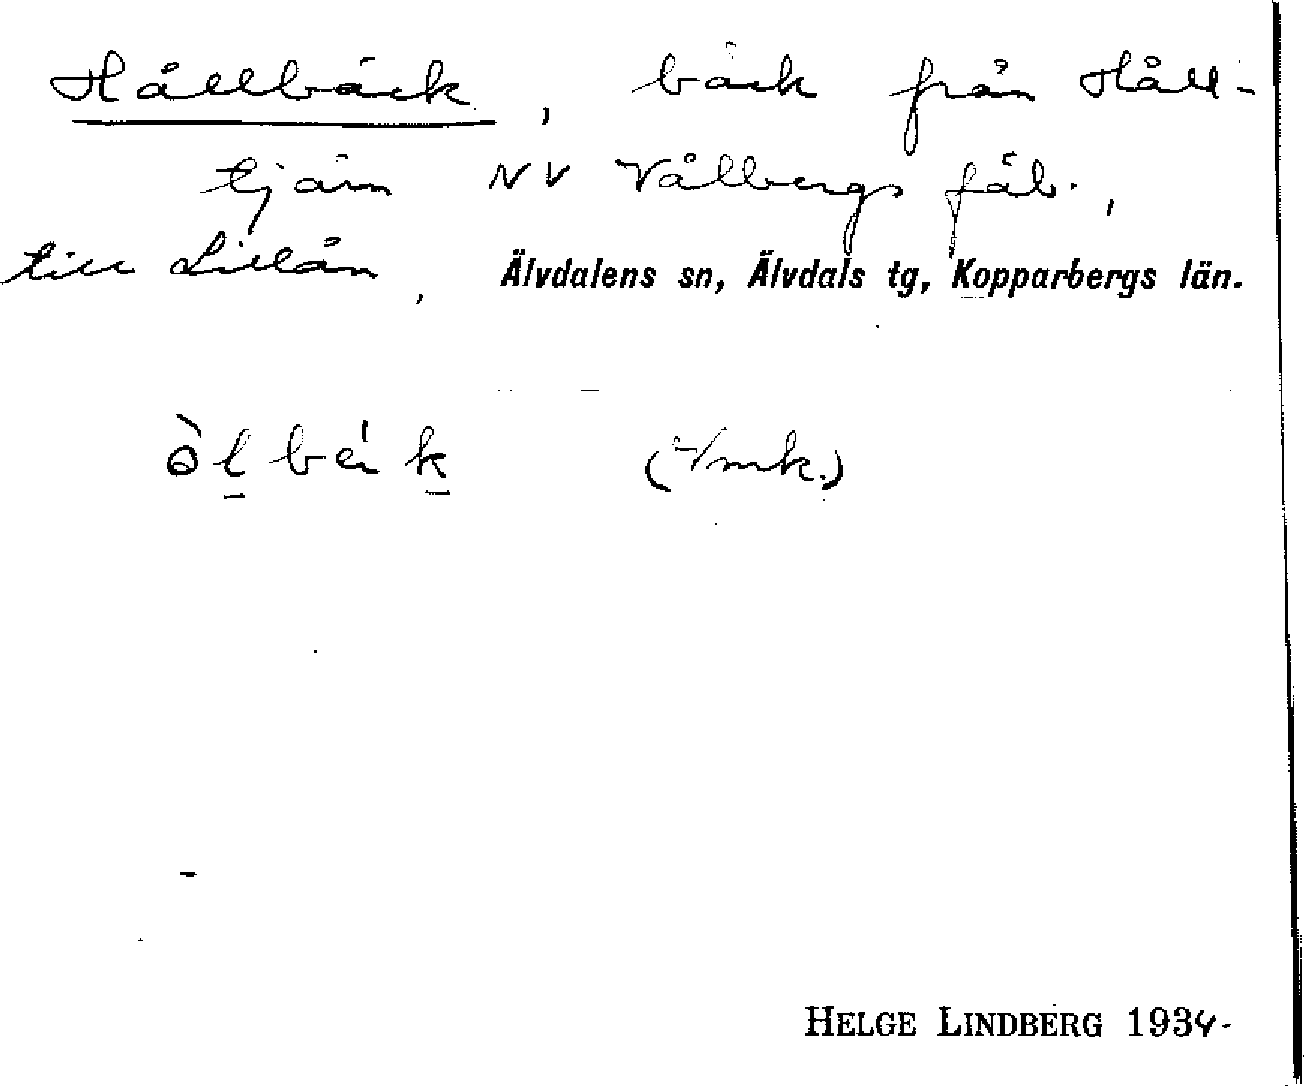 Hållbäck, bäck från Håll-
tjärn NV Vålbergs fäb.,
till Lillån, Älvdalens sn, Älvdals tg, Kopparbergs län.
òl bék
HELGE LINDBERG 1934.